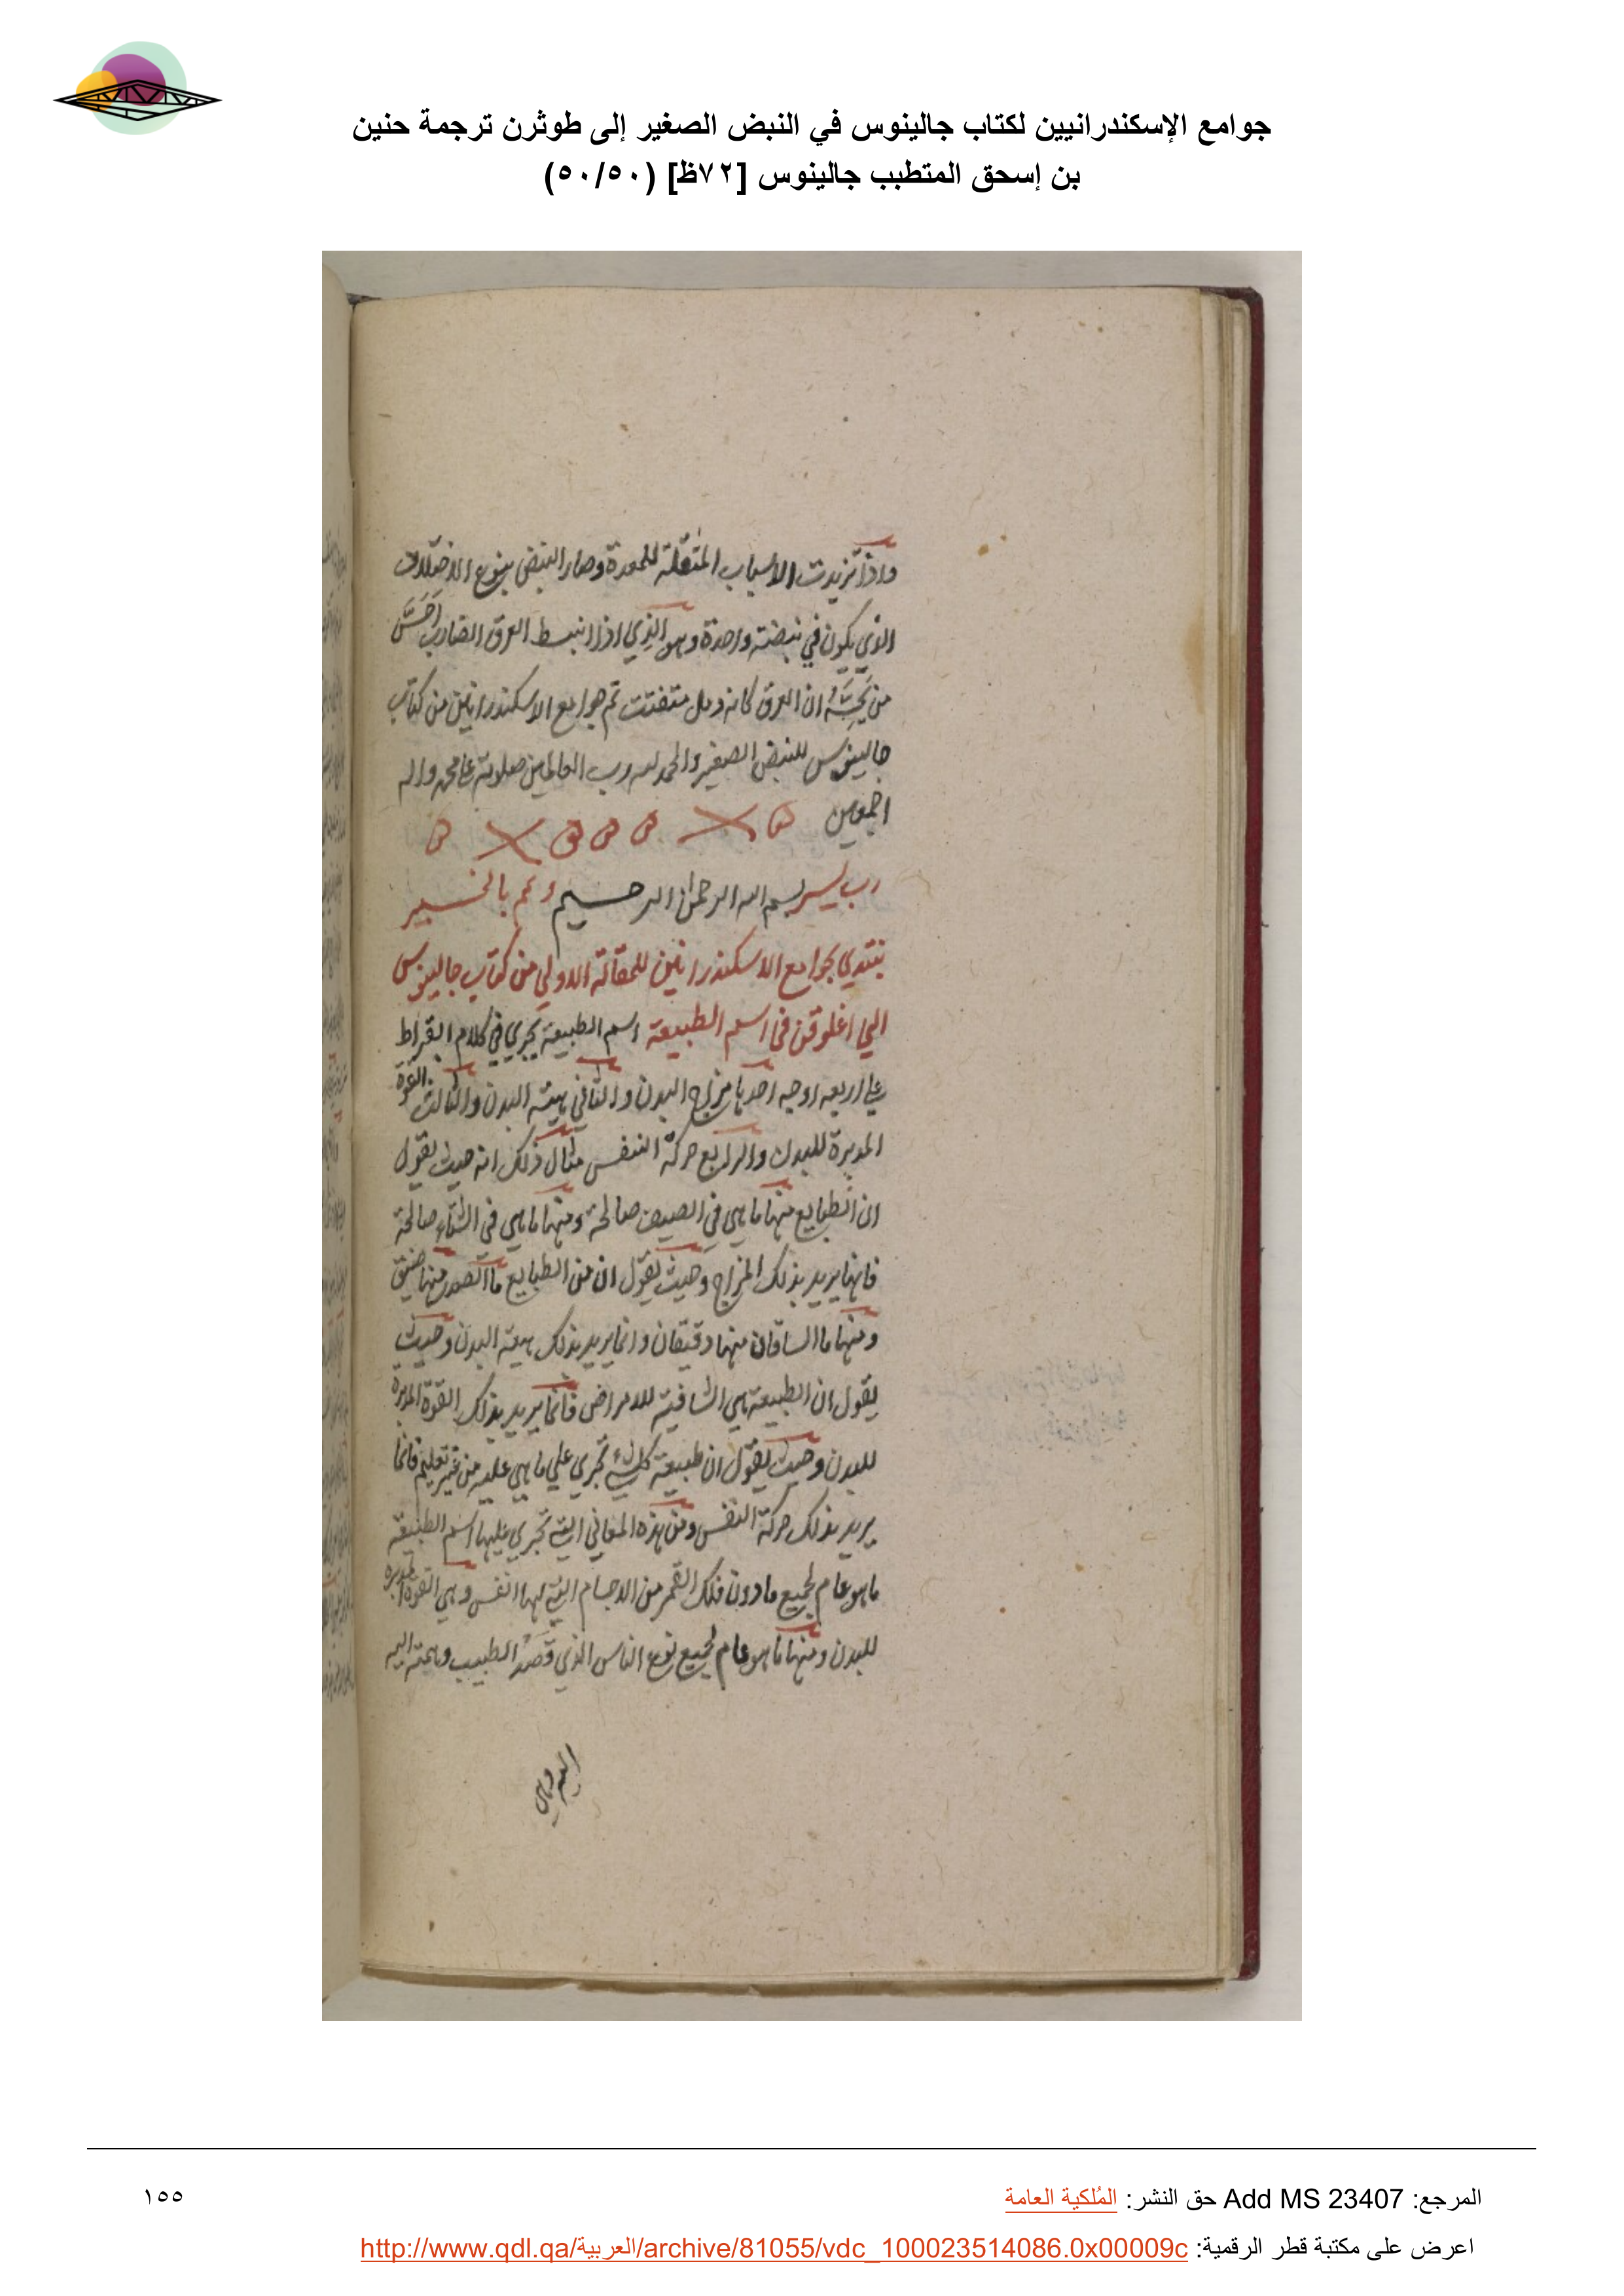 جوامع الإسكندرانيين لكتاب جالينوس في النبض الصغير إلى طوثرن ترجمة حنين
بن إسحق المتطبب جالينوس [٧٢ظ] (٥٠/٥٠)
واذا تزيدت الاسباب المثقلة للمعدة وصار النبض بنوع الاختلاف
الذي يكون في نبضة واحدة وهو الذي اذا انبسط العرق الضارب احَسَّ
من يَجُسُّه ان العرق كانه دمل متفتت تم جوامع الاسكندرانيين من كتاب
جالينوس للنبض الصغير والحمد لله رب العالمين صلوته على محمد واله
اجمعين
رب يسر بسم الله الرحمن الرحيم وتمم بالخير
نبتدي بجوامع الاسكندرانيين للمقالة الاولي من كتاب جالينوس
الي اغلوقن في اسم الطبيعة اسم الطبيعة يجري في كلام ابقراط
علي اربعه اوجه احدها مزاج البدن والثاني هيئة البدن والثالث القوة
المدبرة للبدن والرابع حركة النفس مثال ذلك انه حيث يقول
ان الطبايع منها ما هي في الصيف صالحة ومنها ما هي في الشتاء صالحة
فانها يريد بذلك المزاج وحيث يقول ان من الطبايع ما الصدر منها ضيق
ومنها ما الساقان منها دقيقان وانما يريد بذلك هيئة البدن وحيث
يقول ان الطبيعة هي الشافية للامراض فانما يريد بذلك القوة المدبرة
للبدن وحيث يقول ان طبيعة كل شيء تجري علي ما هي عليه من غير تعليم فانما
يريد بذلك حركة النفس ومن هذه المعاني التي تجري عليها اسم الطبيعة
ما هو عام لجميع ما دون فلك القمر من الاجسام التي لها انفس وهي القوة المدبرة
للبدن ومنها ما هو عام لجميع نوع الناس الذي قصد الطبيب وهمته اليه
اليه وهي
المرجع: Add MS 23407 حق النشر: المُلكية العامة
١٥٥
اعرض على مكتبة قطر الرقمية: http://www.qdl.qa/العربية/archive/81055/vdc_100023514086.0x00009c